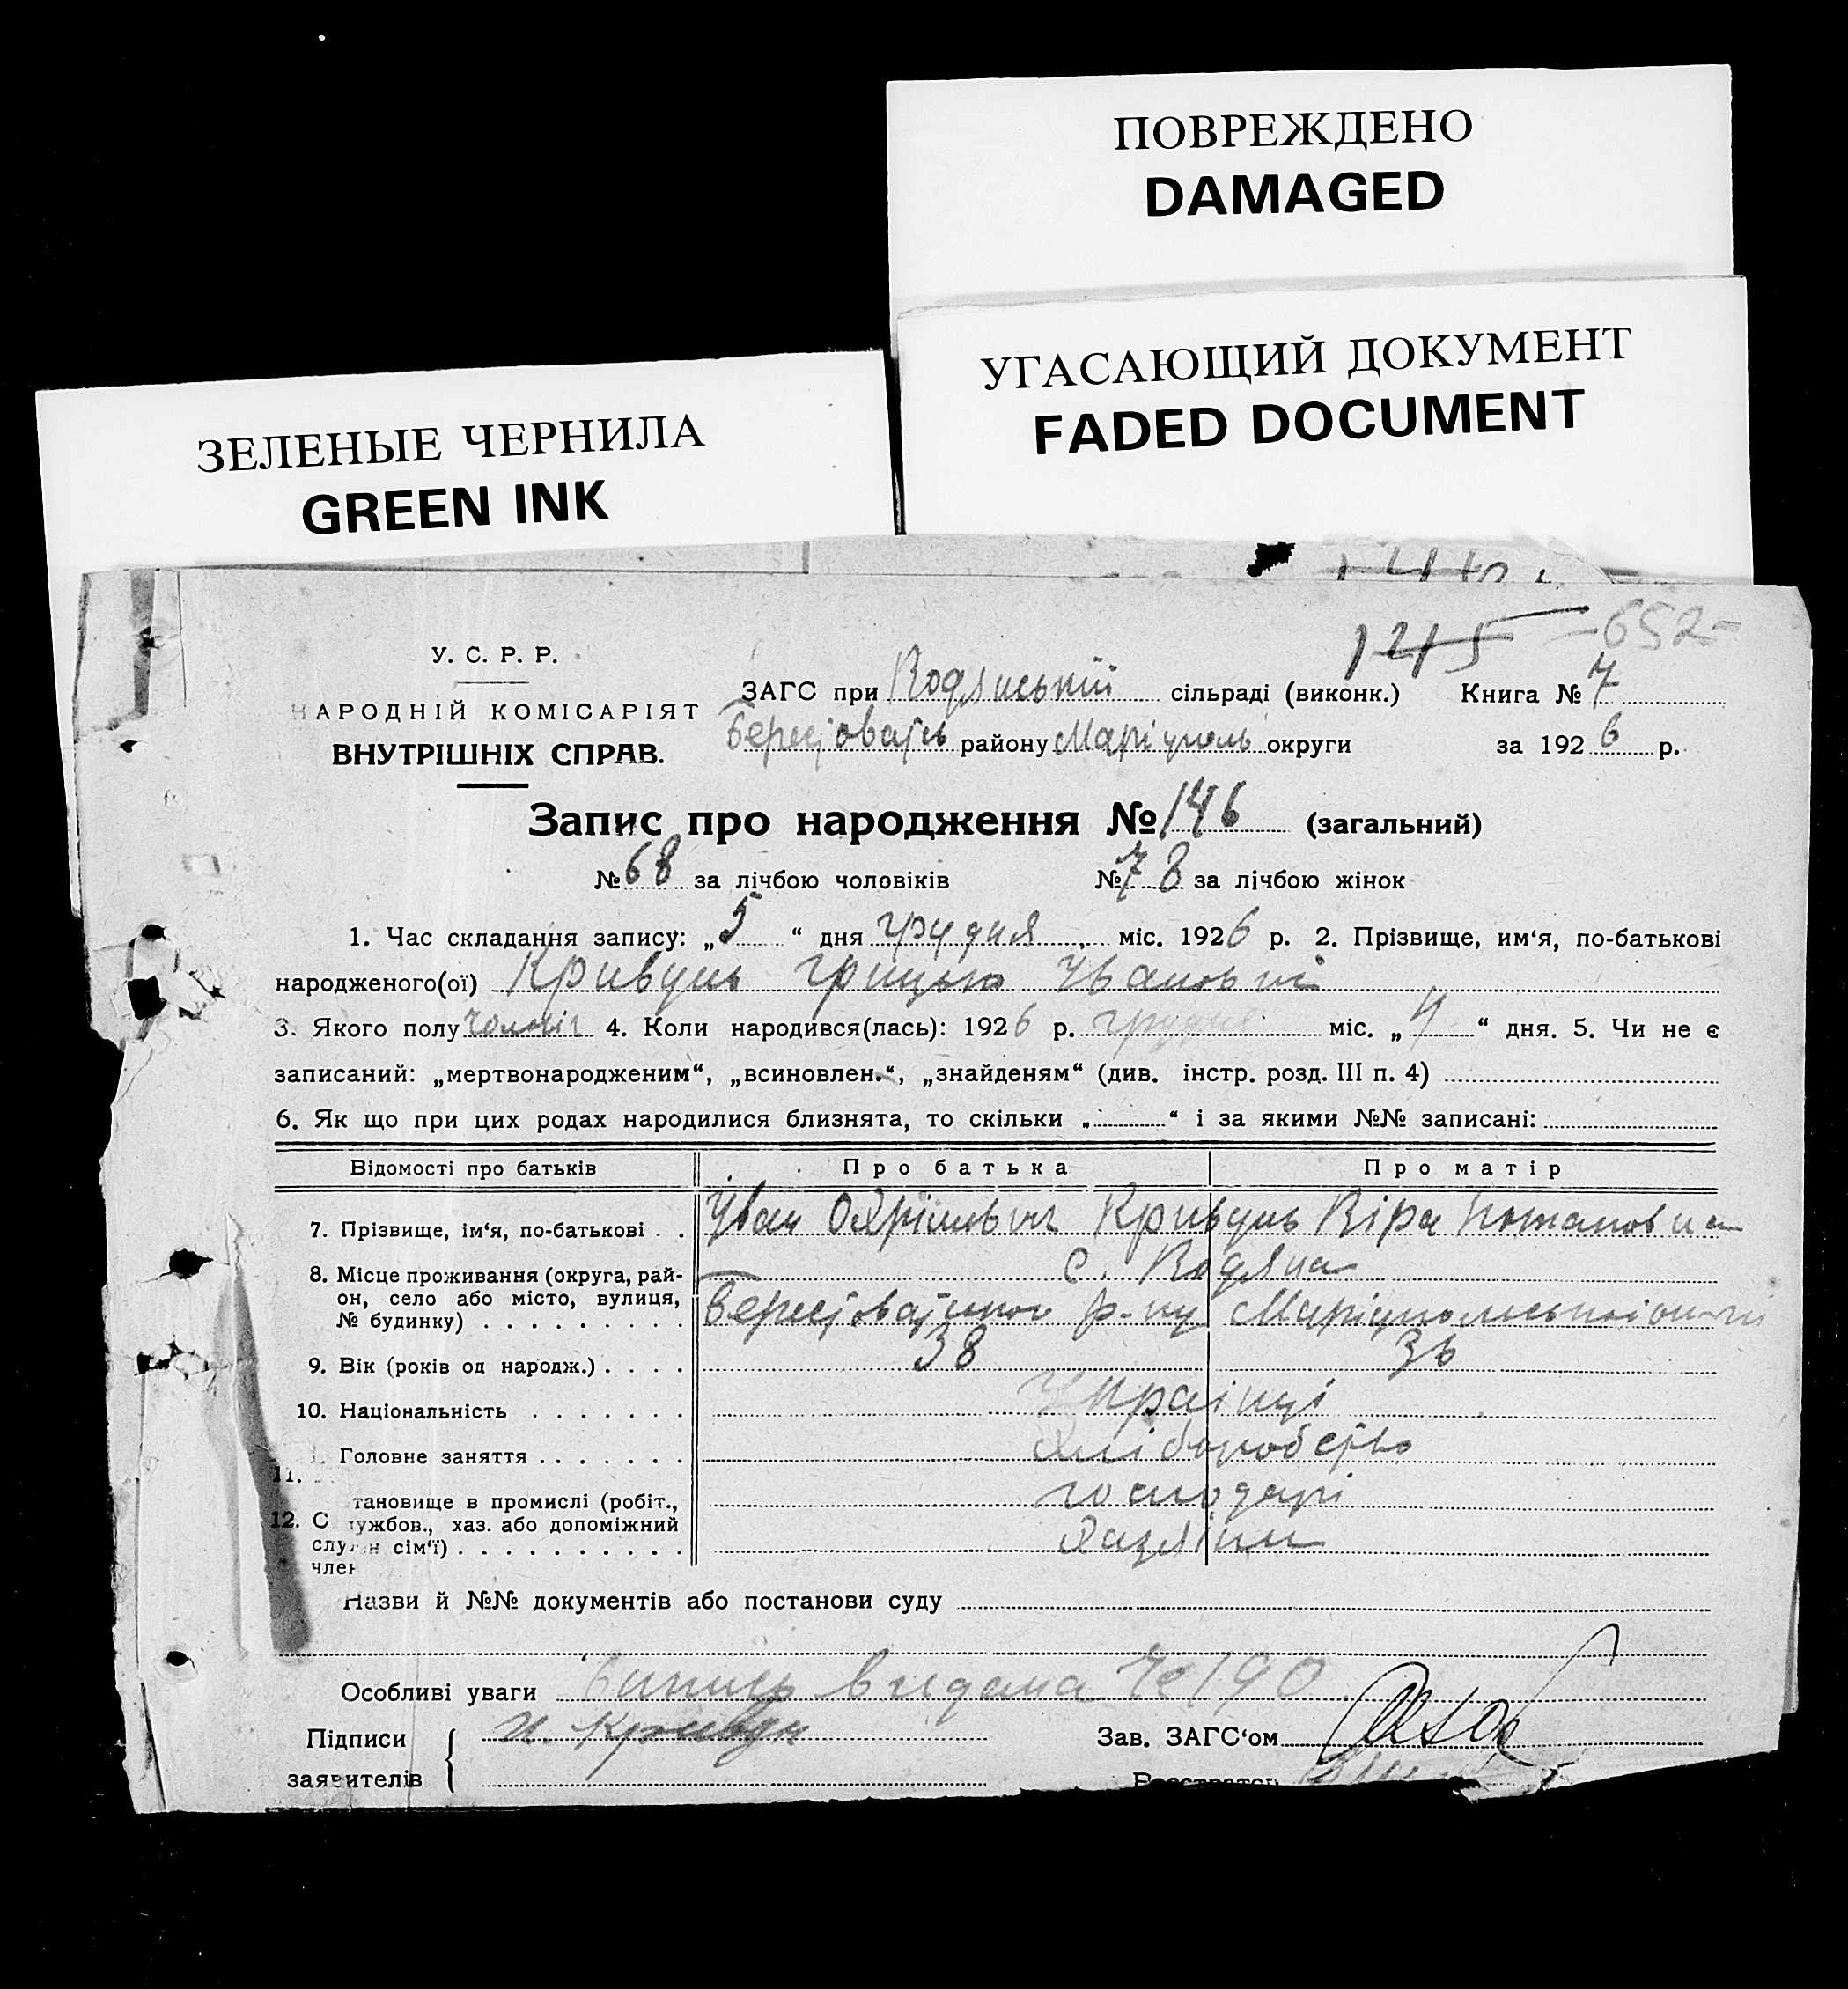 ПОВРЕЖДЕНО
DAMAGED
УГАСАЮЩИЙ ДОКУМЕНТ
FADED DOCUMENT
ЗЕЛЕНЫЕ ЧЕРНИЛА
GREEN INK
145 -652-
У. С. Р. Р.
НАРОДНІЙ КОМІСАРІЯТ
ВНУТРІШНІХ СПРАВ.
ЗАГС при Водянській сільраді (виконк.) Книга № 7
району Маріуполь округи за 1926 р.
Запис про народження № 146 (загальний)
№ 68 за лічбою чоловіків № 78 за лічбою жінок
1. Час складання запису: „5“ дня грудня міс. 1926 р. 2. Прізвище, им‘я, по-батькові
народженого(ої) Кривунь Грицько
3. Якого полу 4. Коли народився(лась): 1926 р. грудня міс. „4“ дня. 5. Чи не є
записаний: „мертвонародженим“, „всиновлен.“, „знайденям“ (див. інстр. розд. III п. 4)
6. Як що при цих родах народилися близнята, то скільки „ “ і за якими №№ записані:
Відомості про батьків Про батька Про матір
7. Прізвище, ім‘я, по-батькові . . Кривунь Віра
8. Місце проживання (округа, рай- с. Водяна
он, село або місто, вулиця,
№ будинку) . . . . . . . . . р-ну
9. Вік (років од народж.) . . . . 38 36
10. Національність . . . . . . . Украінці
11. Головне заняття . . . . . . . Хліборобство
12. Становище в промислі (робіт., господарі
службов., хаз. або допоміжний
член сім‘ї) . . . . . . . . . .
Назви й №№ документів або постанови суду
Особливі уваги Випись видана № 190
Підписи И. Кривун Зав. ЗАГС‘ом
заявителів